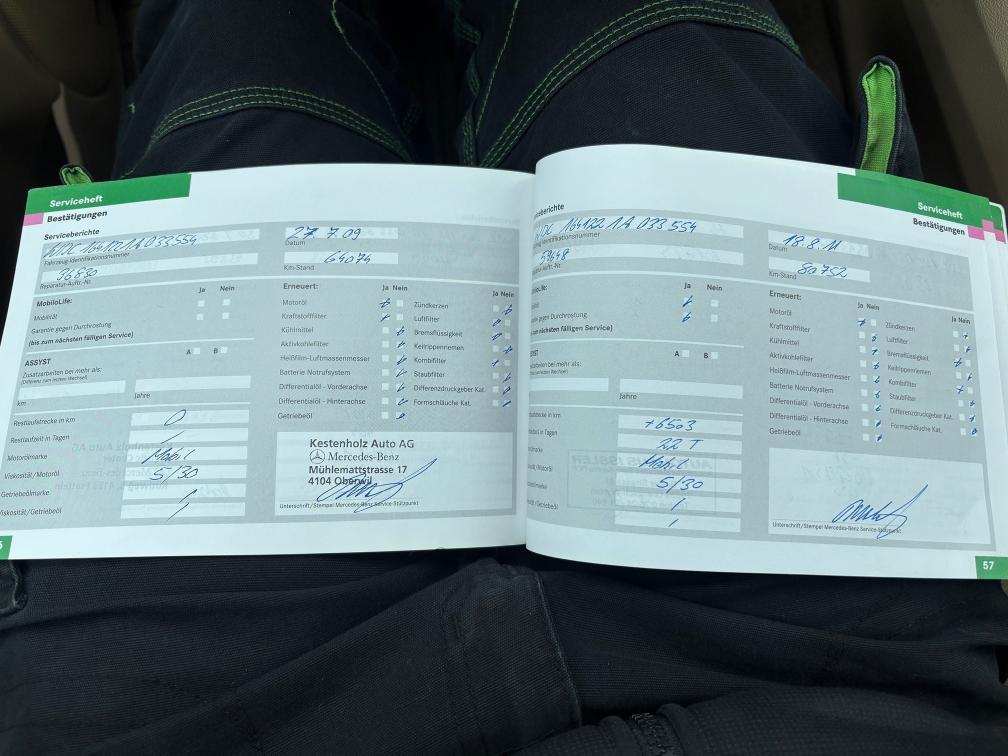 Serviceheft
Bestätigungen
Serviceberichte
WDC 164122 1A 033554
Fahrzeug-Identifikationsnummer
27.7.09
Datum
36830
Reparatur-Auftr.-Nr.
64074
Km-Stand
MobiloLife:
Ja Nein
Mobilität
Garantie gegen Durchrostung
(bis zum nächsten fälligen Service)
ASSYST
A B
Zusatzarbeiten bei mehr als:
(Differenz zum letzten Wechsel)
km
Jahre
Restlaufstrecke in km
0
Restlaufzeit in Tagen
/
Motorölmarke
Mobil
Viskosität/Motoröl
5/30
Getriebeölmarke
/
Viskosität/Getriebeöl
/
Erneuert:
Ja Nein
Ja Nein
Motoröl
Zündkerzen
Kraftstoffilter
Luftfilter
Kühlmittel
Bremsflüssigkeit
Aktivkohlefilter
Keilrippenriemen
Heißfilm-Luftmassenmesser
Kombifilter
Batterie Notrufsystem
Staubfilter
Differentialöl - Vorderachse
Differenzdruckgeber Kat.
Differentialöl - Hinterachse
Formschläuche Kat.
Getriebeöl
Kestenholz Auto AG
Mercedes-Benz
Mühlemattstrasse 17
4104 Oberwil
Unterschrift/Stempel Mercedes-Benz Service-Stützpunkt
Serviceheft
Bestätigungen
viceberichte
WDC 164122 1A 033554
zeug-Identifikationsnummer
18.8.11
Datum
59648
paratur-Auftr.-Nr.
80752
Km-Stand
biloLife:
Ja Nein
ntie gegen Durchrostung
zum nächsten fälligen Service)
SYST
A B
tzarbeiten bei mehr als:
Jahre
ufstrecke in km
+6503
ufzeit in Tagen
22 T
lmarke
Mobil
ät/Motoröl
5/30
eölmarke
/
ität/Getriebeöl
/
Erneuert:
Ja Nein
Ja Nein
Motoröl
Zündkerzen
Kraftstoffilter
Luftfilter
Kühlmittel
Bremsflüssigkeit
Aktivkohlefilter
Keilrippenriemen
Heißfilm-Luftmassenmesser
Kombifilter
Batterie Notrufsystem
Staubfilter
Differentialöl - Vorderachse
Differenzdruckgeber Kat.
Differentialöl - Hinterachse
Formschläuche Kat.
Getriebeöl
Unterschrift/Stempel Mercedes-Benz Service-Stützpunkt
57